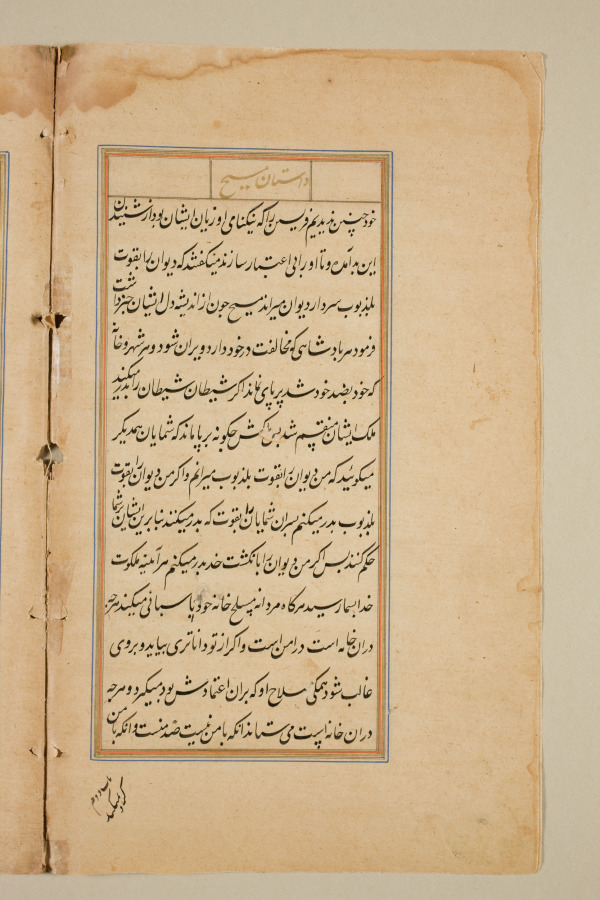 داستان مسیح
خود چنین ندیدیم فریسن را که نیکنامی او زیان ایشان بود از شنیدن
این بدآمده و تا او را بی اعتبار سازند میکفتند که دیوان را بقوت
بلذبوب سردار دیوان میراند مسیح چون از اندیشه دل ایشان خبر داشت
فرمود هر بادشاهی که مخالفت در خود دارد ویران شود و هر شهر و خانه
که خود بضد خود شد بر پای نماند اکر شیطان شیطان را بدر میکند
ملک ایشان منقسم شد بس ملکش چکونه بر پا ماند که شمایان همدیکر
میکوئید که من دیوان را بقوت بلذبوب میرانم و اکر من دیوان را بقوت
بلذبوب بدر میکنم سران شمایان بقوت که بدر میکنند بنابرین ایشان بر شما
حکم کنند بس اکر من دیوان را بانکشت خدا بدر میکنم هر آینه ملکوت
خدا بشما رسید هرکاه مردانه مسلح خانه خود را پاسبانی میکند هر چه
دران خانه است در امن است و اکر از تو داناتری بیاید و بر وی
غالب شود همکی سلاح او که بران اعتمادش بود میکیرد و هر چه
دران خانه است می ستاند آنکه با من نیست ضد منست و آنکه با من